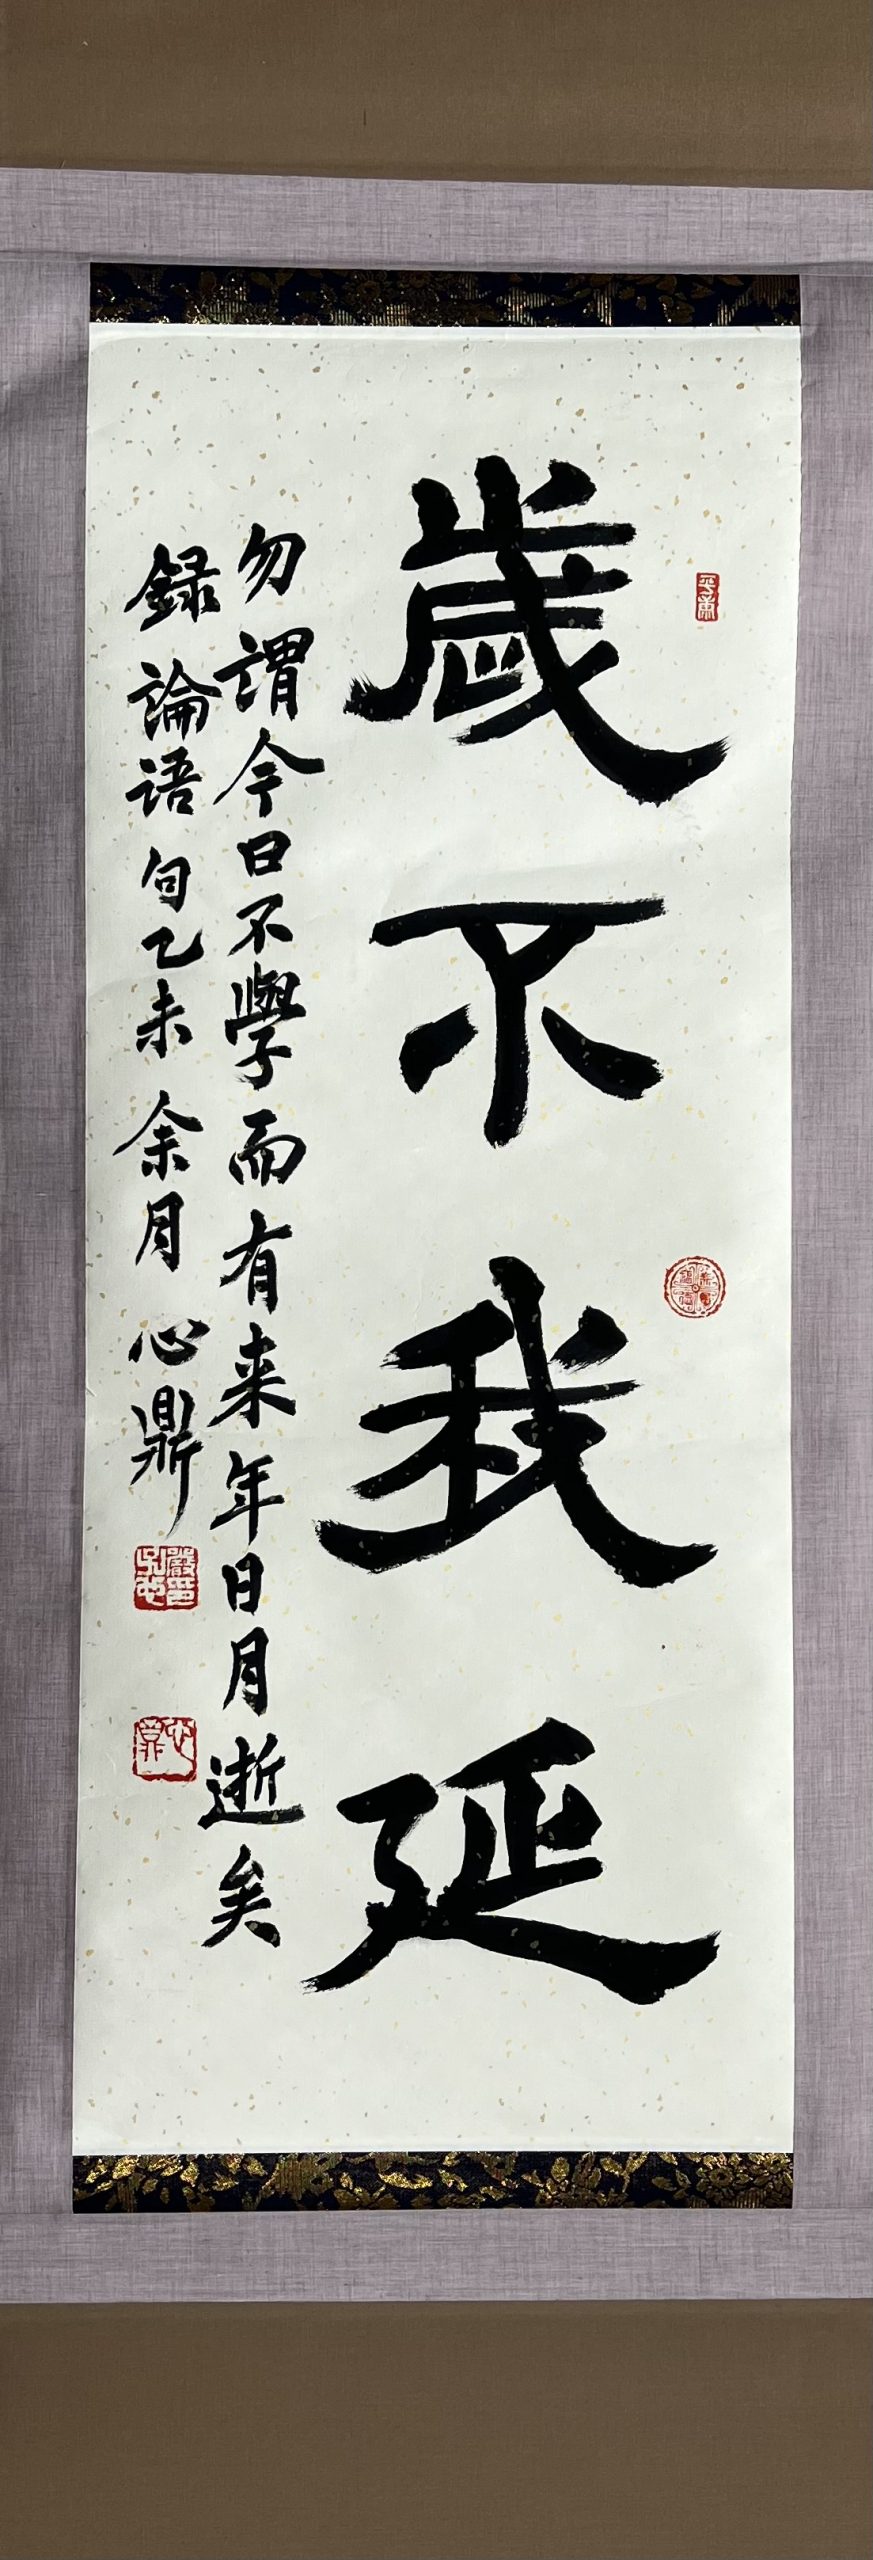 歲不我延
勿謂今日不學而有来年日月逝矣
録論語句乙未余月心鼎